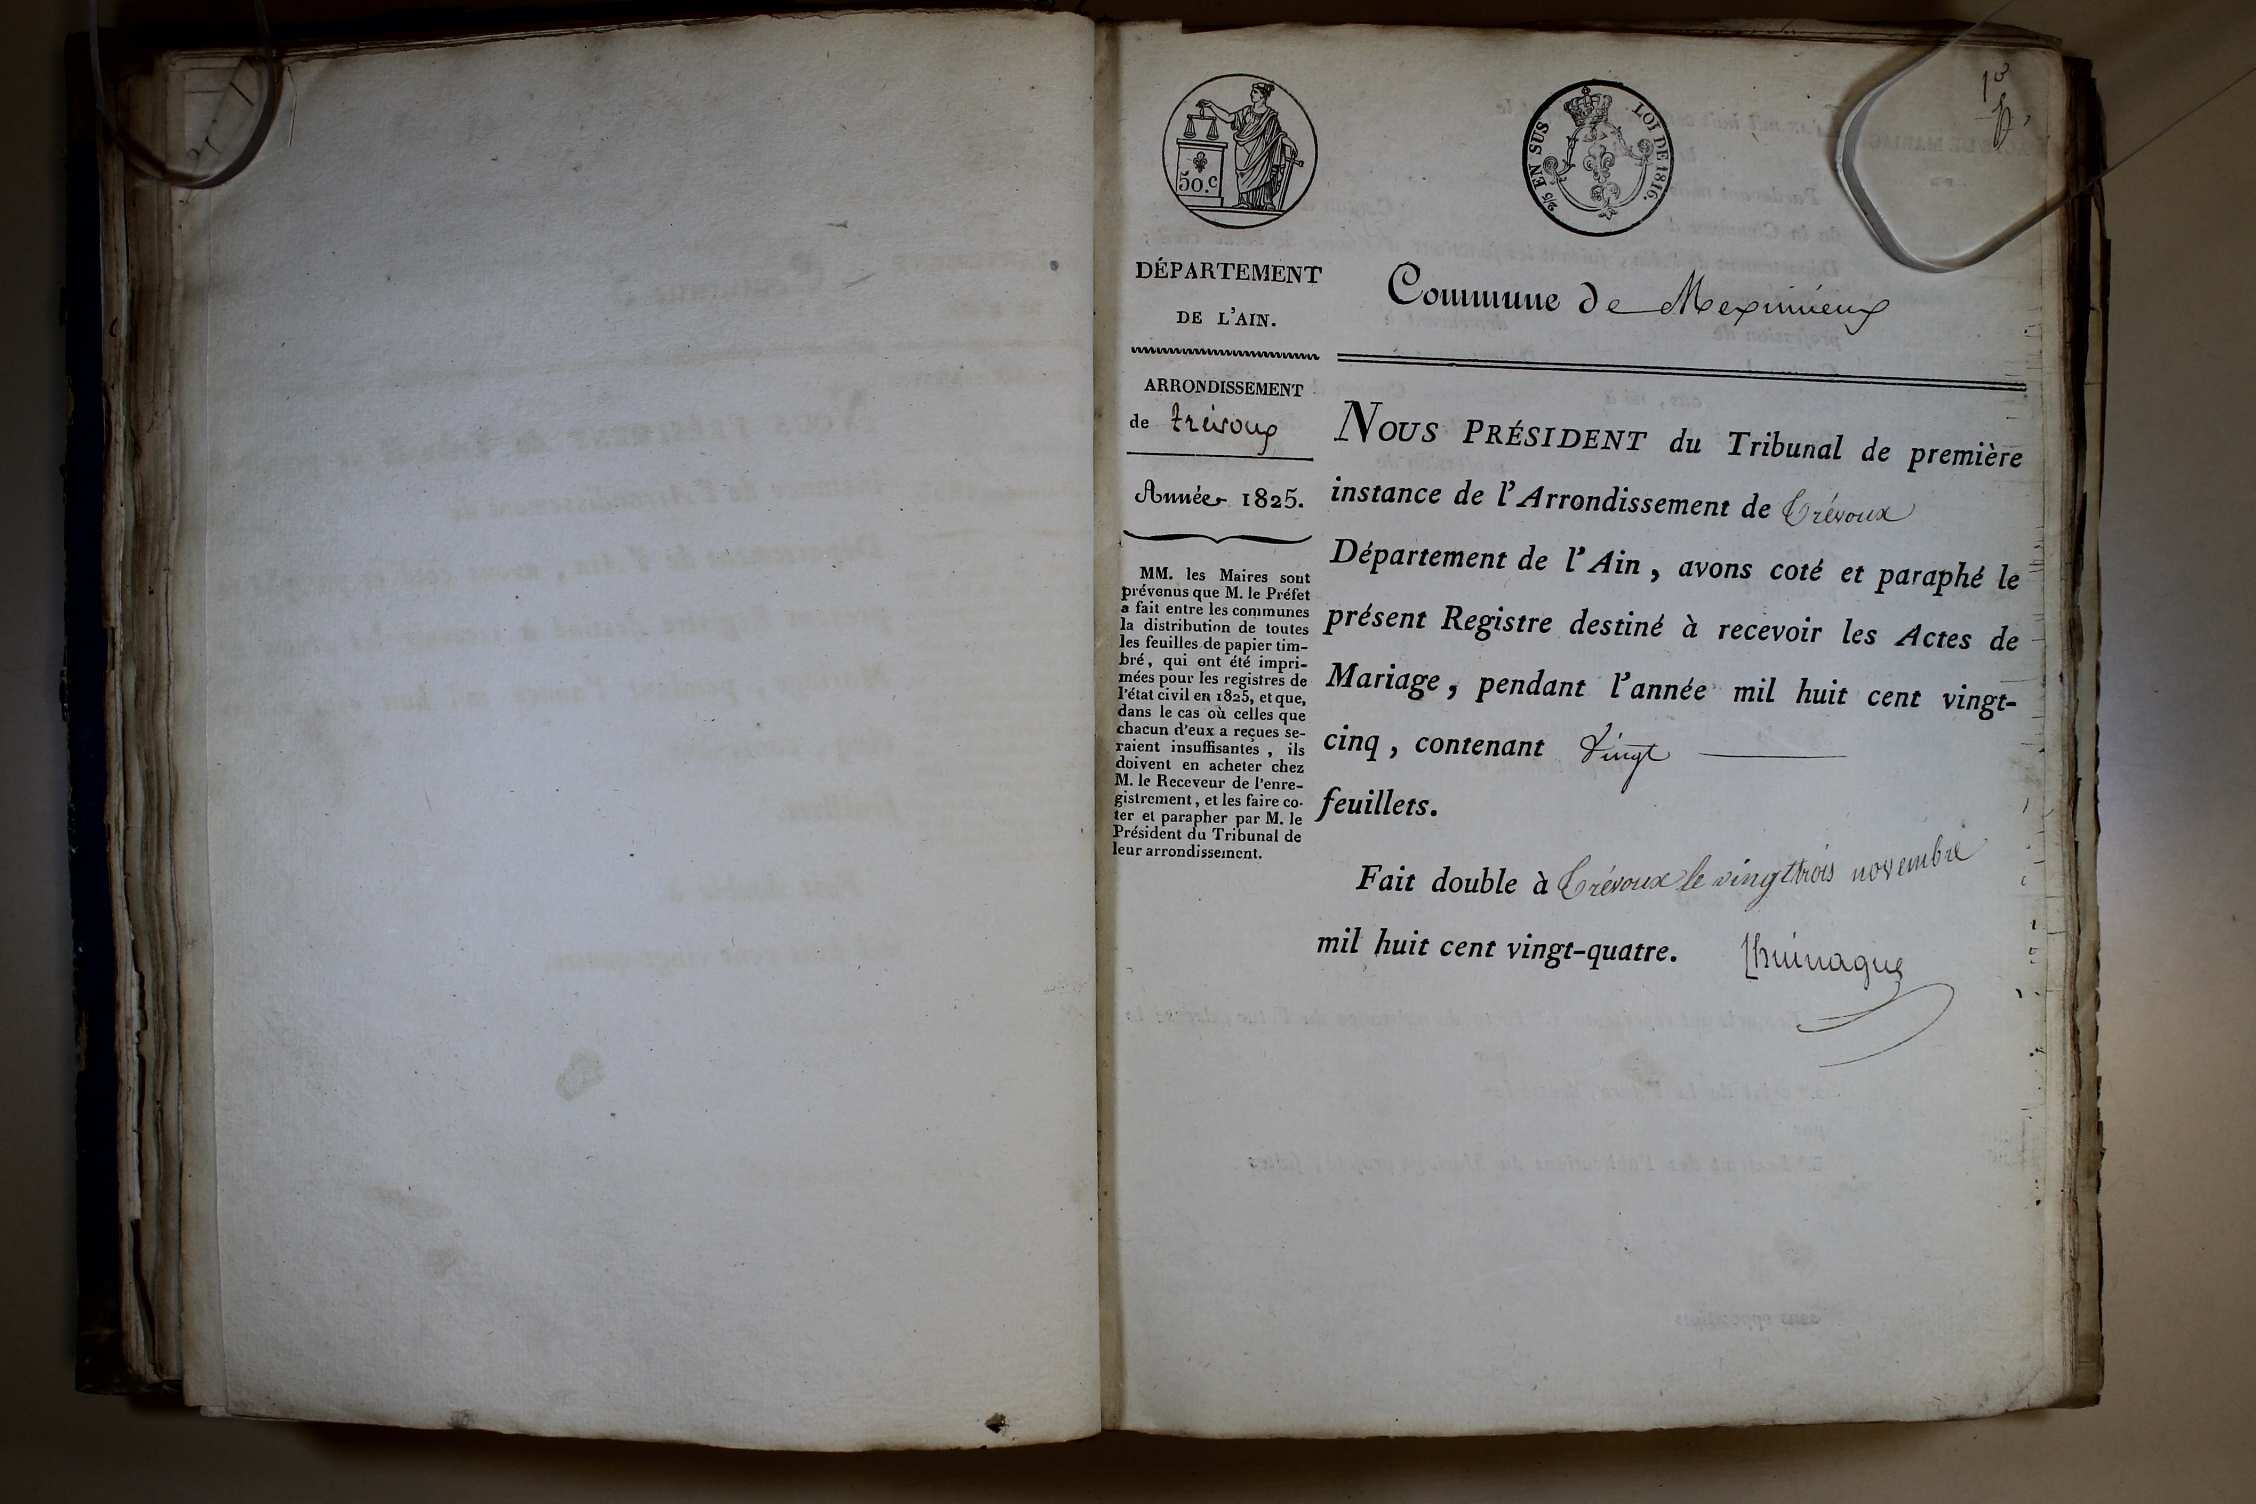 50.c
2/5 EN SUS
LOI DE 1816.
1er
DÉPARTEMENT
DE L'AIN.
Commune de Meximieux
ARRONDISSEMENT
de trévoux
Année 1825.
MM. les Maires sont
prévenus que M. le Préfet
a fait entre les communes
la distribution de toutes
les feuilles de papier tim-
bré, qui ont été impri-
mées pour les registres de
l'état civil en 1825, et que,
dans le cas où celles que
chacun d'eux a reçues se-
raient insuffisantes, ils
doivent en acheter chez
M. le Receveur de l'enre-
gistrement, et les faire co-
ter et parapher par M. le
Président du Tribunal de
leur arrondissement.
NOUS PRÉSIDENT du Tribunal de première
instance de l'Arrondissement de Trévoux
Département de l'Ain, avons coté et paraphé le
présent Registre destiné à recevoir les Actes de
Mariage, pendant l'année mil huit cent vingt-
cinq, contenant Vingt
feuillets.
Fait double à Trévoux le vingt trois novembre
mil huit cent vingt-quatre.